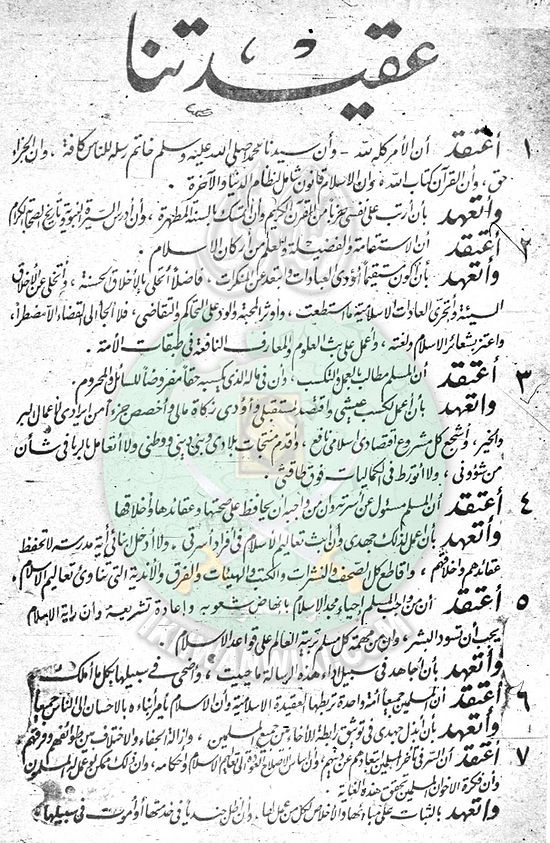 عقيدتنا
١ أعتقد أن الأمر كله لله - وأن سيدنا محمدا صلى الله عليه وسلم خاتم رسله للناس كافة ، وأن الجزاء
حق ، وأن القرآن كتاب الله ، وأن الإسلام قانون شامل لنظام الدنيا والآخرة
وأتعهد بأن أرتب على نفسى حزبا من القرآن الكريم وأن أتمسك بالسنة المطهرة ، وأن أدرس السيرة النبوية وتاريخ الصحابة الكرام
٢ أعتقد أن الاستقامة والفضيلة والعلم من أركان الإسلام .
وأتعهد بأن أكون مستقيما أؤدى العبادات وأبتعد عن المنكرات ، فاضلا أتحلى بالأخلاق الحسنة ، وأتخلى عن الأخلاق
السيئة وأتحرى العادات الإسلامية ما استطعت ، وأوثر المحبة والود على التحاكم والتقاضى ، فلا ألجأ إلى القضاء إلا مضطرا ،
وأعتز بشعائر الإسلام ولغته ، وأعمل على بث العلوم والمعارف النافعة فى طبقات الأمة .
٣ أعتقد أن المسلم مطالب بالعمل والتكسب ، وأن فى ماله الذى يكسبه حقا مفروضا للسائل والمحروم .
وأتعهد بأن أعمل لكسب عيشى وأقتصد لمستقبلى وأؤدى زكاة مالى وأخصص جزءا من إيرادى لأعمال البر
والخير ، وأشجع كل مشروع اقتصادى إسلامى نافع ، وأقدم منتجات بلادى وبنى دينى ووطنى ولا أتعامل بالربا فى شأن
من شؤونى ، ولا أتورط فى الكماليات فوق طاقتى .
٤ أعتقد أن المسلم مسئول عن أسرته وأن من واجبه أن يحافظ على صحتها وعقائدها وأخلاقها
وأتعهد بأن أعمل لذلك جهدى وأن أبث تعاليم الإسلام فى أفراد أسرتى ، ولا أدخل أبنائى أية مدرسة لا تحفظ
عقائدهم وأخلاقهم ، وأقاطع كل الصحف والنشرات والكتب والهيئات والفرق والأندية التى تناوئ تعاليم الإسلام .
٥ أعتقد أن من واجب المسلم إحياء مجد الإسلام بإنهاض شعوبه وإعادة تشريعه وأن راية الإسلام
يجب أن تسود البشر ، وأن من مهمة كل مسلم تربية العالم على قواعد الإسلام .
وأتعهد بأن أجاهد فى سبيل أداء هذه الرسالة ما حييت ، وأضحى فى سبيلها بكل ما أملك
٦ أعتقد أن المسلمين جميعا أمة واحدة تربطها العقيدة الإسلامية وأن الإسلام يأمر أبناءه بالإحسان إلى الناس جميعا
وأتعهد بأن أبذل جهدى فى توثيق رابطة الإخاء بين جميع المسلمين ، وإزالة الجفاء والاختلاف بين طوائفهم وفرقهم
٧ أعتقد أن السر فى تأخر المسلمين ابتعادهم عن دينهم وأن أساس الإصلاح العودة إلى تعاليم الإسلام وأحكامه ، وأن ذلك ممكن لو عمل له المسلمون
وأن فكرة الإخوان المسلمين تحقق هذه الغاية .
وأتعهد بالثبات على مبادئها والإخلاص لكل من عمل لها . وأن أظل جنديا فى خدمتها أو أموت فى سبيلها
IKHWANWIKI.COM